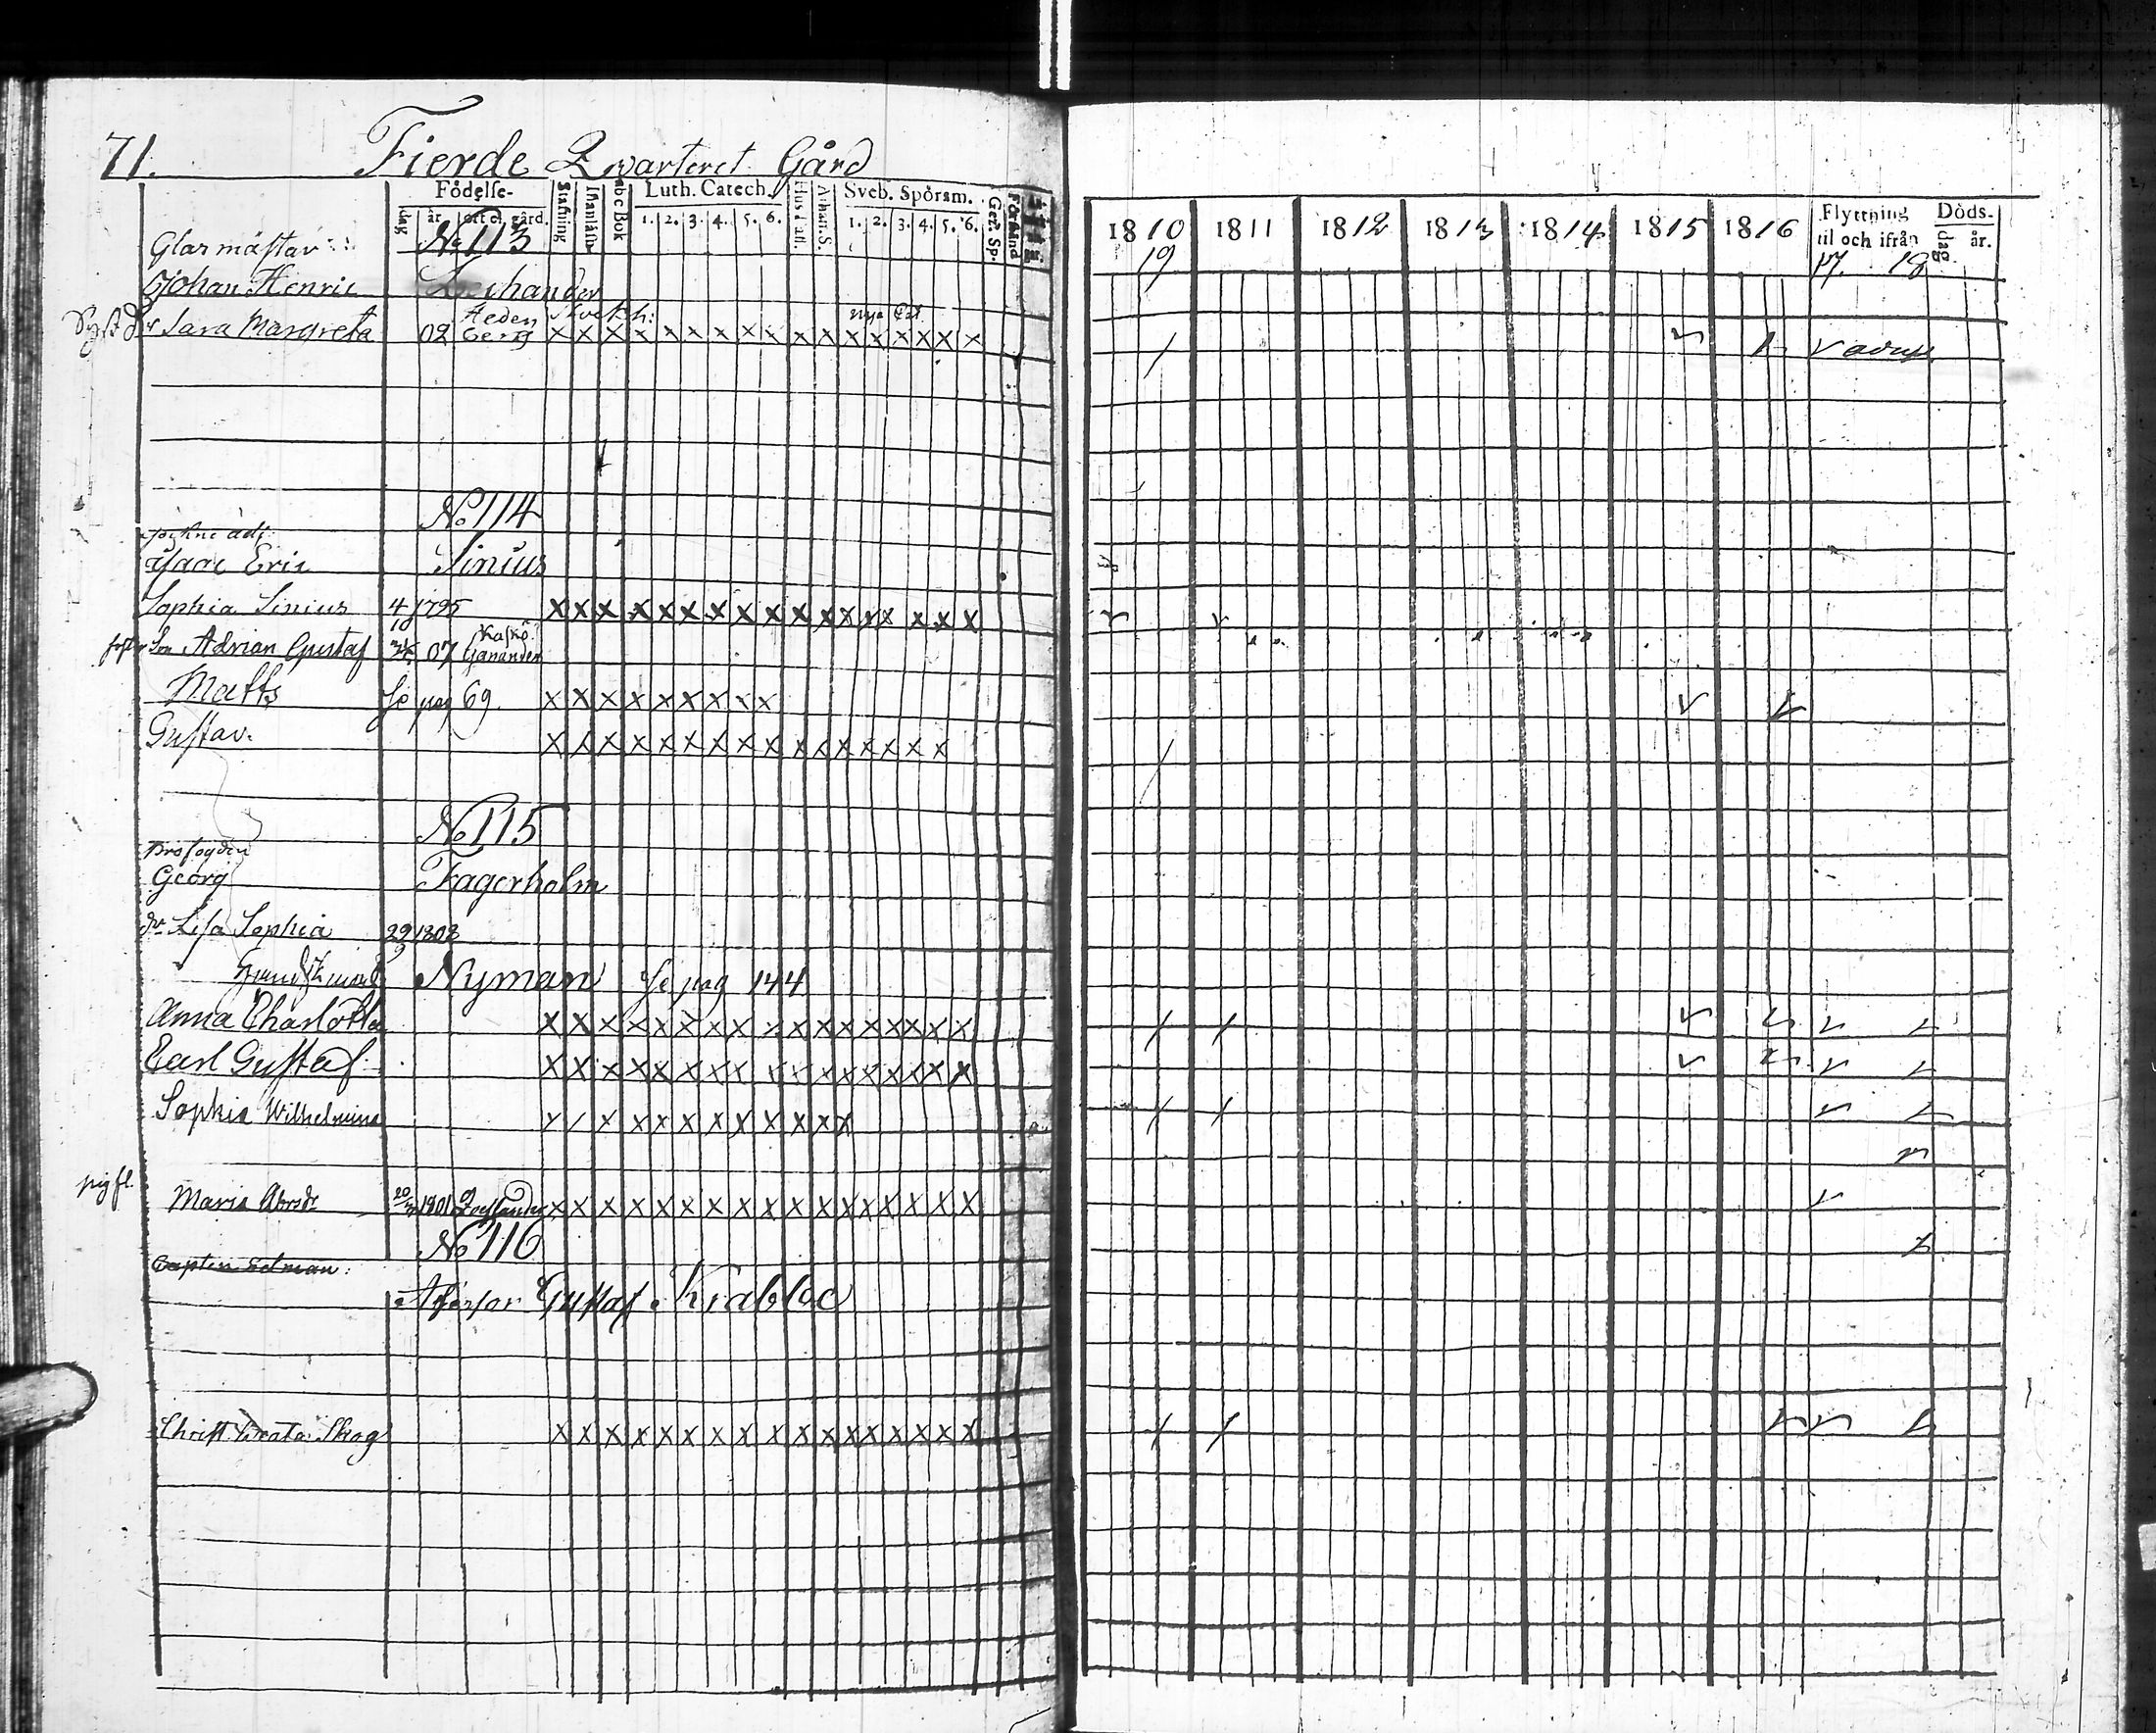 71. Fierde Qwarteret Gård
Födelse-
dag år ort el. gård.
Stafning
Innanläsn.
abc Bok
Luth. Catech.
1. 2. 3. 4. 5. 6.
Hustafl.
Athan. S.
Sveb. Spörsm.
1. 2. 3. 4. 5. 6.
Ger. Sp.
Förstånd
No 113
Glasmästar
Johan Henric
Sara Margreta 02 x x x x x x x x x x x x x x x x x
No 114
Isaac Eric Sinius
Sophia Sinius 4 1795 x x x x x x x x x x x x x x x x x
Son Adrian Gustaf 07 Kaskö Ganander
Matts se pag 69. x x x x x x x x x
Gustav x x x x x x x x x x x x x x x x
No 115
Georg Fagerholm
dr Lisa Sophia 29 1808
Nyman se pag 144
Anna Charlotta x x x x x x x x x x x x x x x x x
Carl Gustaf x x x x x x x x x x x x x x x x x
Sophia Wilhelmina x / x x x x x x x x x x
Maria Abrsdr 20 1801 x x x x x x x x x x x x x x x x x
No 116
Captein Edman
Assessor Gustaf Krabbe
Christ Beata Skog x x x x x x x x x x x x x x x x x
1810 1811 1812 1813 1814 1815 1816
Flyttning til och ifrån
Döds-
dag år.
19 17. 18